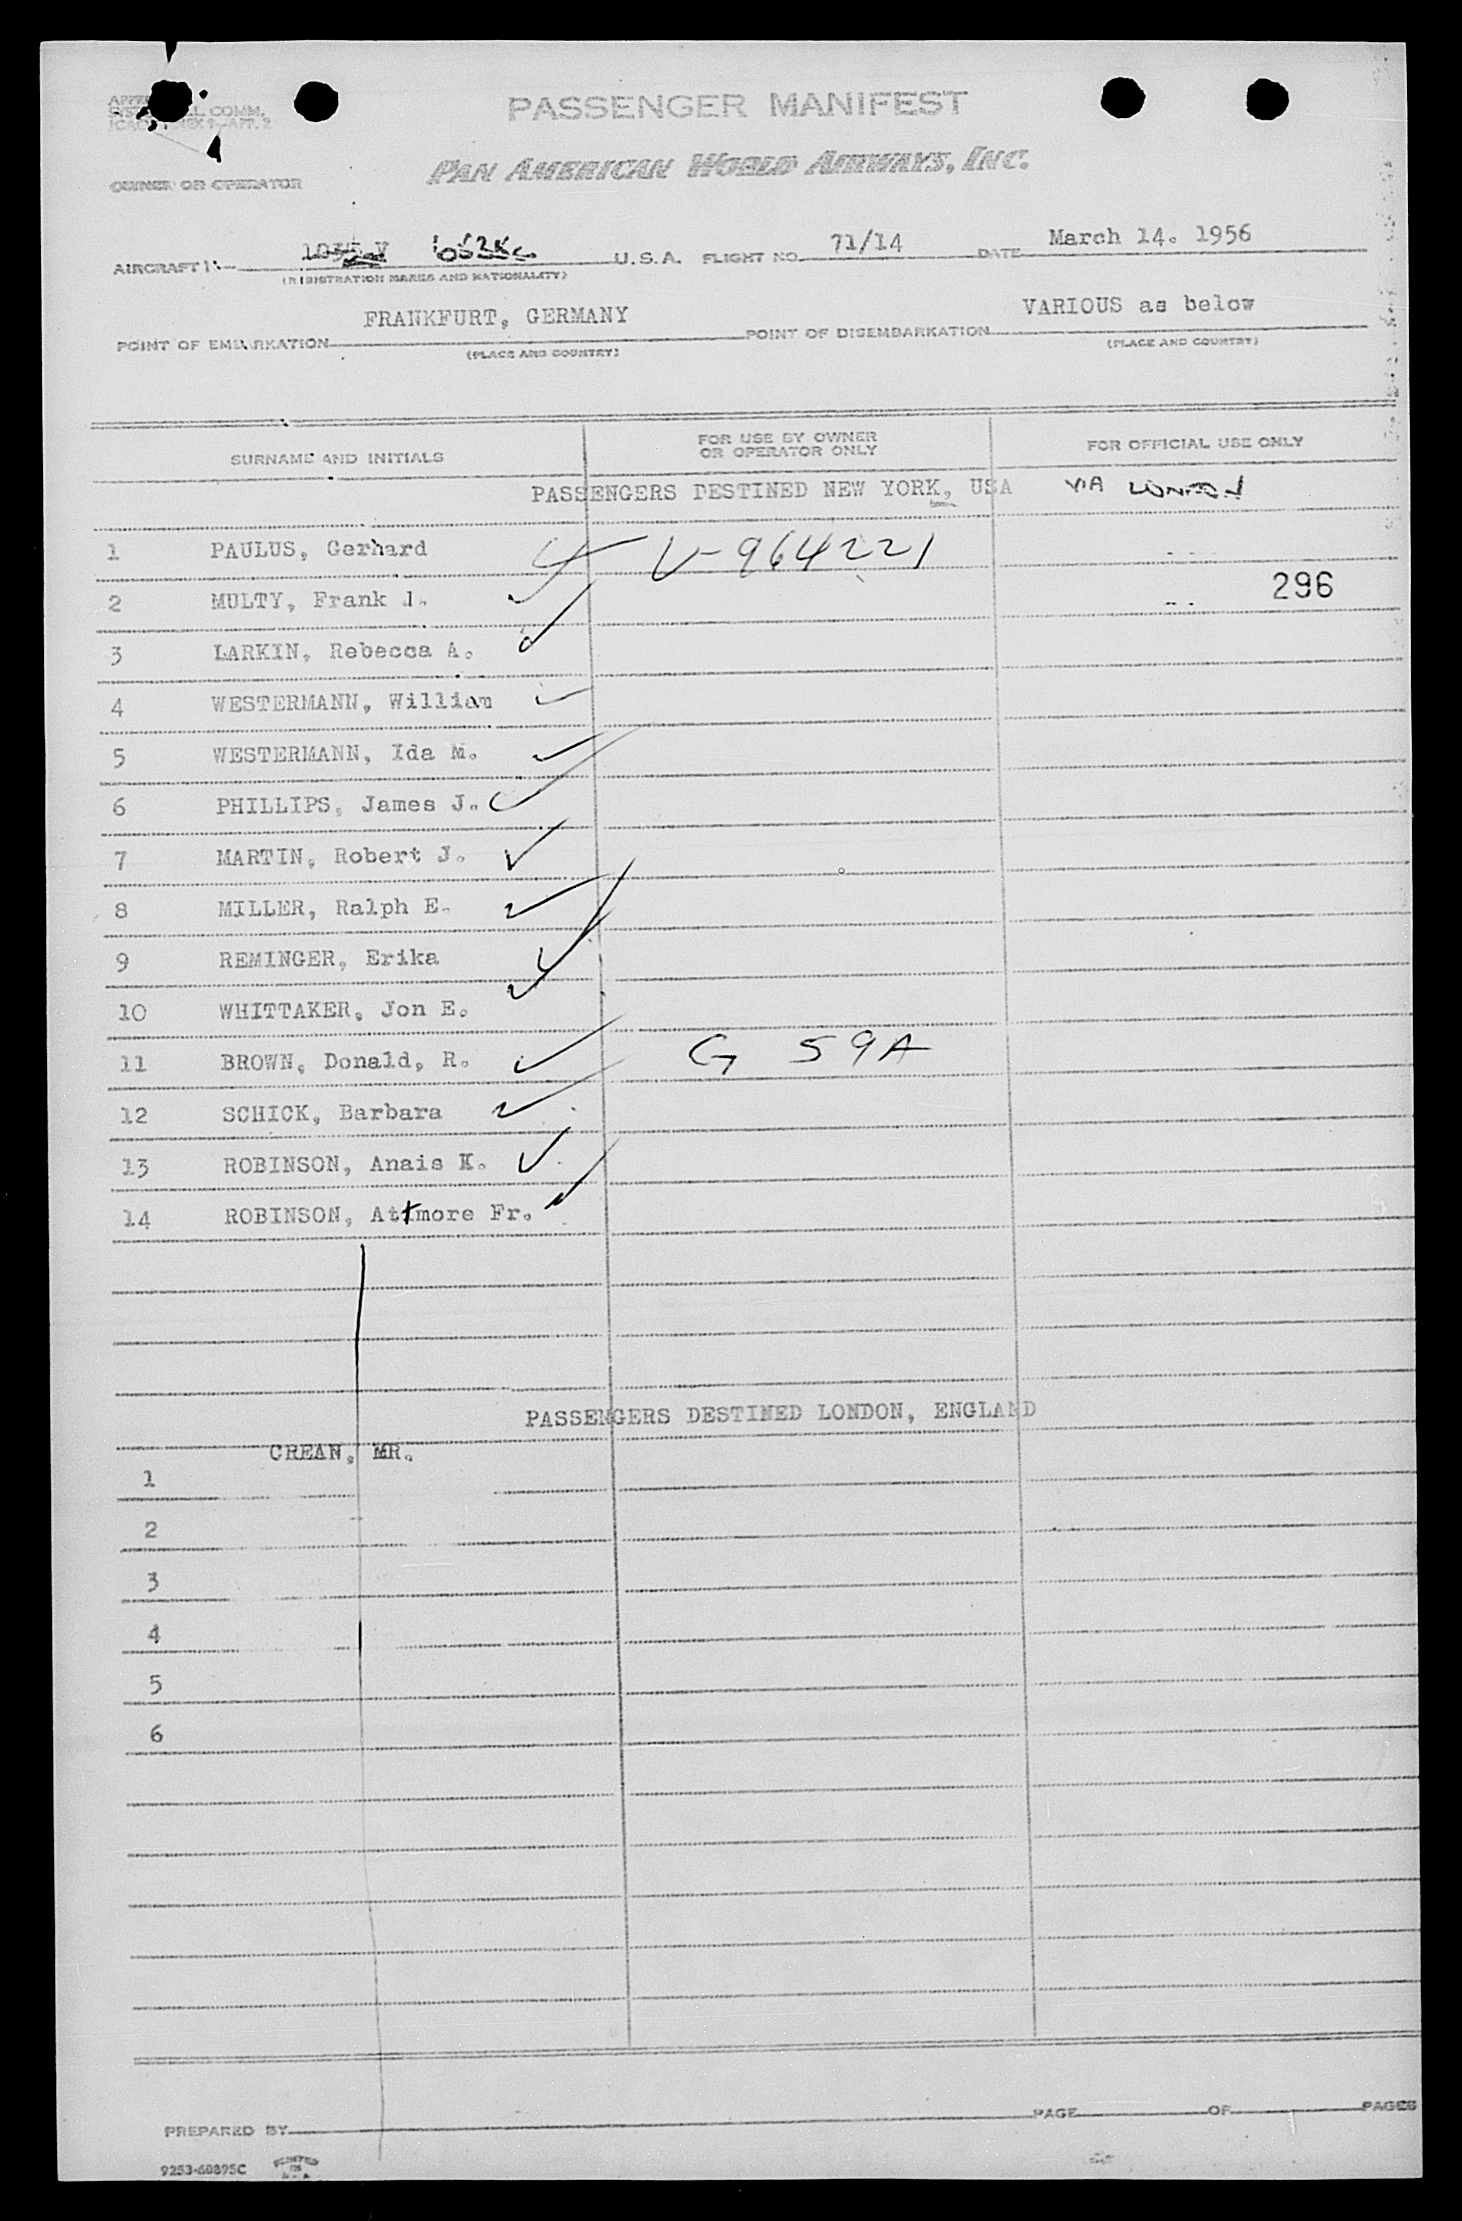 PASSENGER MANIFEST
OWNER OR OPERATOR PAN AMERICAN WORLD AIRWAYS, INC.
AIRCRAFT U.S.A. FLIGHT NO. 71/14 DATE March 14. 1956
(REGISTRATION MARKS AND NATIONALITY)
POINT OF EMBARKATION FRANKFURT, GERMANY POINT OF DISEMBARKATION VARIOUS as below
(PLACE AND COUNTRY) (PLACE AND COUNTRY)
SURNAME AND INITIALS FOR USE BY OWNER OR OPERATOR ONLY FOR OFFICIAL USE ONLY
PASSENGERS DESTINED NEW YORK, USA VIA LONDON
1 PAULUS, Gerhard V-964221
2 MULTY, Frank J. 296
3 LARKIN, Rebecca A.
4 WESTERMANN, William
5 WESTERMANN, Ida M.
6 PHILLIPS, James J.
7 MARTIN, Robert J.
8 MILLER, Ralph E.
9 REMINGER, Erika
10 WHITTAKER, Jon E.
11 BROWN, Donald, R. G 59A
12 SCHICK, Barbara
13 ROBINSON, Anais K.
14 ROBINSON, Attmore Fr.
PASSENGERS DESTINED LONDON, ENGLAND
1 CREAN, MR.
2
3
4
5
6
PREPARED BY PAGE OF PAGES
9253-60895C